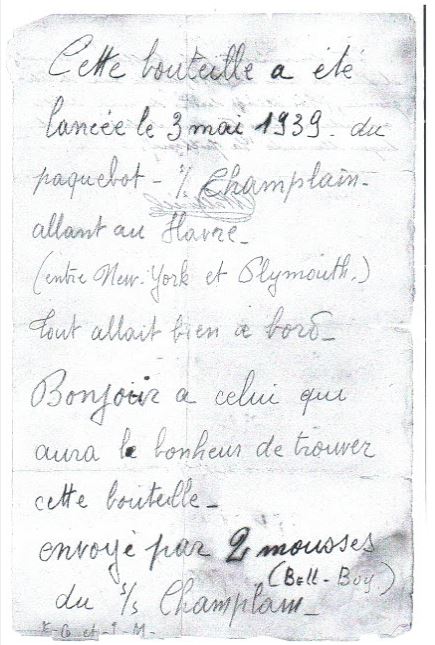 Cette bouteille a été
lancée le 3 mai 1939. du
paquebot - S/S Champlain-
allant au Havre-
(entre New-York et Plymouth.)
tout allait bien à bord-
Bonjour a celui qui
aura le bonheur de trouver
cette bouteille-
envoyé par 2 mousses
(Bell-Boy)
du S/S Champlain-